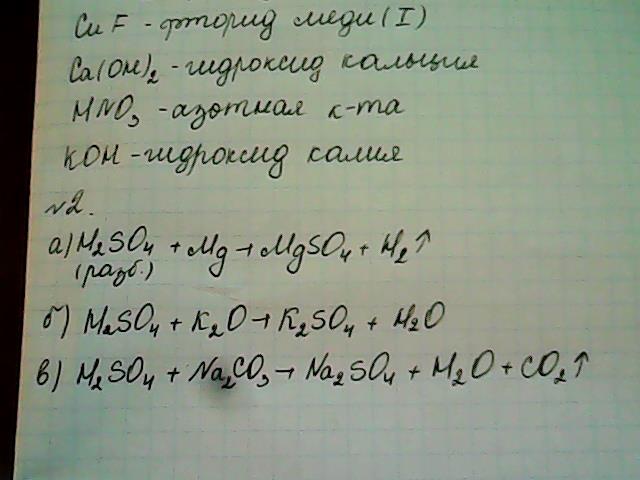 CuF - фторид меди (I)
Ca(OH)₂ - гидроксид кальция
HNO₃ - азотная к-та
KOH - гидроксид калия
№2.
а) H₂SO₄ + Mg → MgSO₄ + H₂↑
(разб.)
б) H₂SO₄ + K₂O → K₂SO₄ + H₂O
в) H₂SO₄ + Na₂CO₃ → Na₂SO₄ + H₂O + CO₂↑